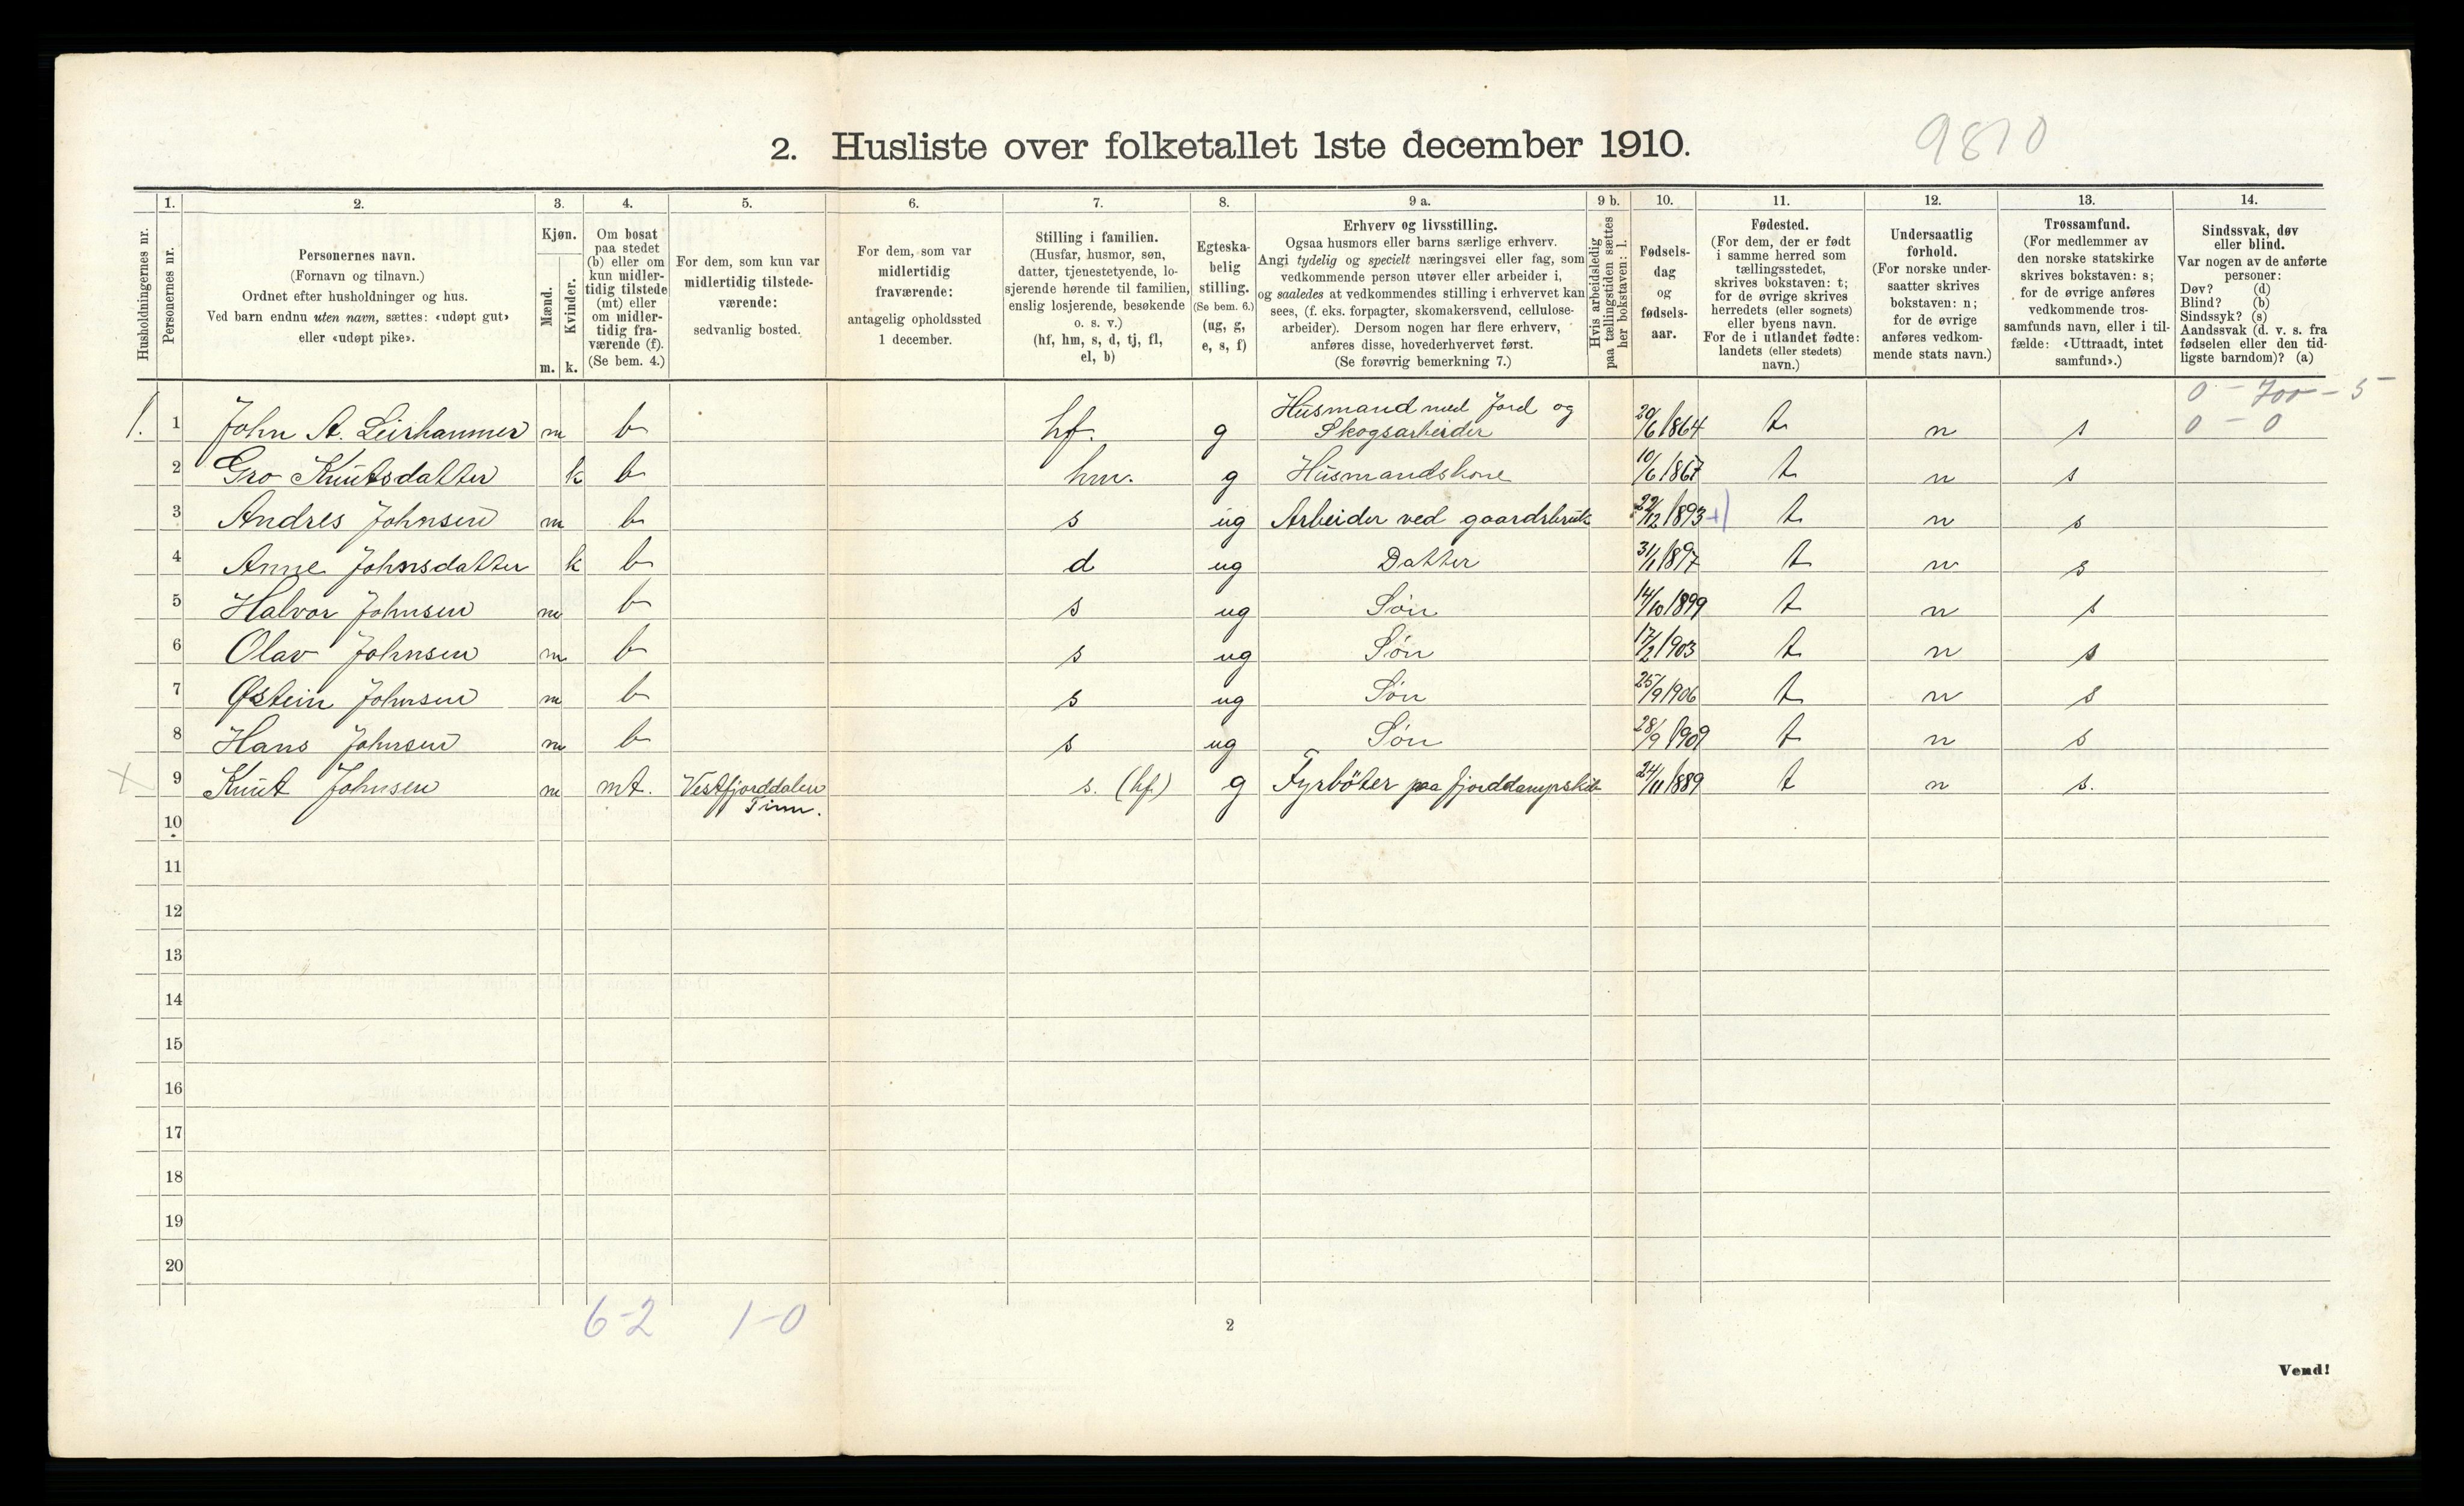 2. Husliste over folketallet 1ste december 1910.
9810
Husholdningernes nr.
1. Personernes nr.
2. Personernes navn.
(Fornavn og tilnavn.)
Ordnet efter husholdninger og hus.
Ved barn endnu uten navn, sættes: «udøpt gut»
eller «udøpt pike».
3. Kjøn.
Mænd. Kvinder.
m. k.
4. Om bosat
paa stedet
(b) eller om
kun midler-
tidig tilstede
(mt) eller
om midler-
tidig fra-
værende (f).
(Se bem. 4.)
5. For dem, som kun var
midlertidig tilstede-
værende:
sedvanlig bosted.
6. For dem, som var
midlertidig
fraværende:
antagelig opholdssted
1 december.
7. Stilling i familien.
(Husfar, husmor, søn,
datter, tjenestetyende, lo-
sjerende hørende til familien,
enslig losjerende, besøkende
o. s. v.)
(hf, hm, s, d, tj, fl,
el, b)
8. Egteska-
belig
stilling.
(Se bem. 6.)
(ug, g,
e, s, f)
9 a. Erhverv og livsstilling.
Ogsaa husmors eller barns særlige erhverv.
Angi tydelig og specielt næringsvei eller fag, som
vedkommende person utøver eller arbeider i,
og saaledes at vedkommendes stilling i erhvervet kan
sees, (f. eks. forpagter, skomakersvend, cellulose-
arbeider). Dersom nogen har flere erhverv,
anføres disse, hovederhvervet først.
(Se forøvrig bemerkning 7.)
9 b. Hvis arbeidsledig
paa tællingstiden sættes
her bokstaven: l.
10. Fødsels-
dag
og
fødsels-
aar.
11. Fødested.
(For dem, der er født
i samme herred som
tællingsstedet,
skrives bokstaven: t;
for de øvrige skrives
herredets (eller sognets)
eller byens navn.
For de i utlandet fødte:
landets (eller stedets)
navn.)
12. Undersaatlig
forhold.
(For norske under-
saatter skrives
bokstaven: n;
for de øvrige
anføres vedkom-
mende stats navn.)
13. Trossamfund.
(For medlemmer av
den norske statskirke
skrives bokstaven: s;
for de øvrige anføres
vedkommende tros-
samfunds navn, eller i til-
fælde: «Uttraadt, intet
samfund».)
14. Sindssvak, døv
eller blind.
Var nogen av de anførte
personer:
Døv? (d)
Blind? (b)
Sindssyk? (s)
Aandssvak (d. v. s. fra
fødselen eller den tid-
ligste barndom)? (a)
0 - 700 - 5
0 - 0
1. 1 John A. Leirhammer m b hf. g Husmand med Jord og Skogsarbeider 20/6 1864 t n s
2 Gro Knutsdatter k b hm. g Husmandskone 10/6 1867 t n s
3 Andres Johnsen m b s ug Arbeider ved gaardsbruk 22/12 1893 t n s
4 Anne Johnsdatter k b d ug Datter 31/1 1897 t n s
5 Halvor Johnsen m b s ug Søn 14/10 1899 t n s
6 Olav Johnsen m b s ug Søn 17/2 1903 t n s
7 Østein Johnsen m b s ug Søn 25/9 1906 t n s
8 Hans Johnsen m b s ug Søn 28/9 1909 t n s
X 9 Knut Johnsen m mt. Vestfjorddalen Tinn. s. (hf) g Fyrböter paa fjorddampskib 24/11 1889 t n s.
10
11
12
13
14
15
16
17
18
19
20
6-2 1-0
2
Vend!